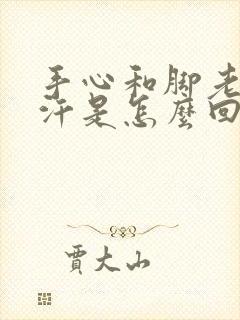 手心和脚老
汗是怎麽回
贾大山